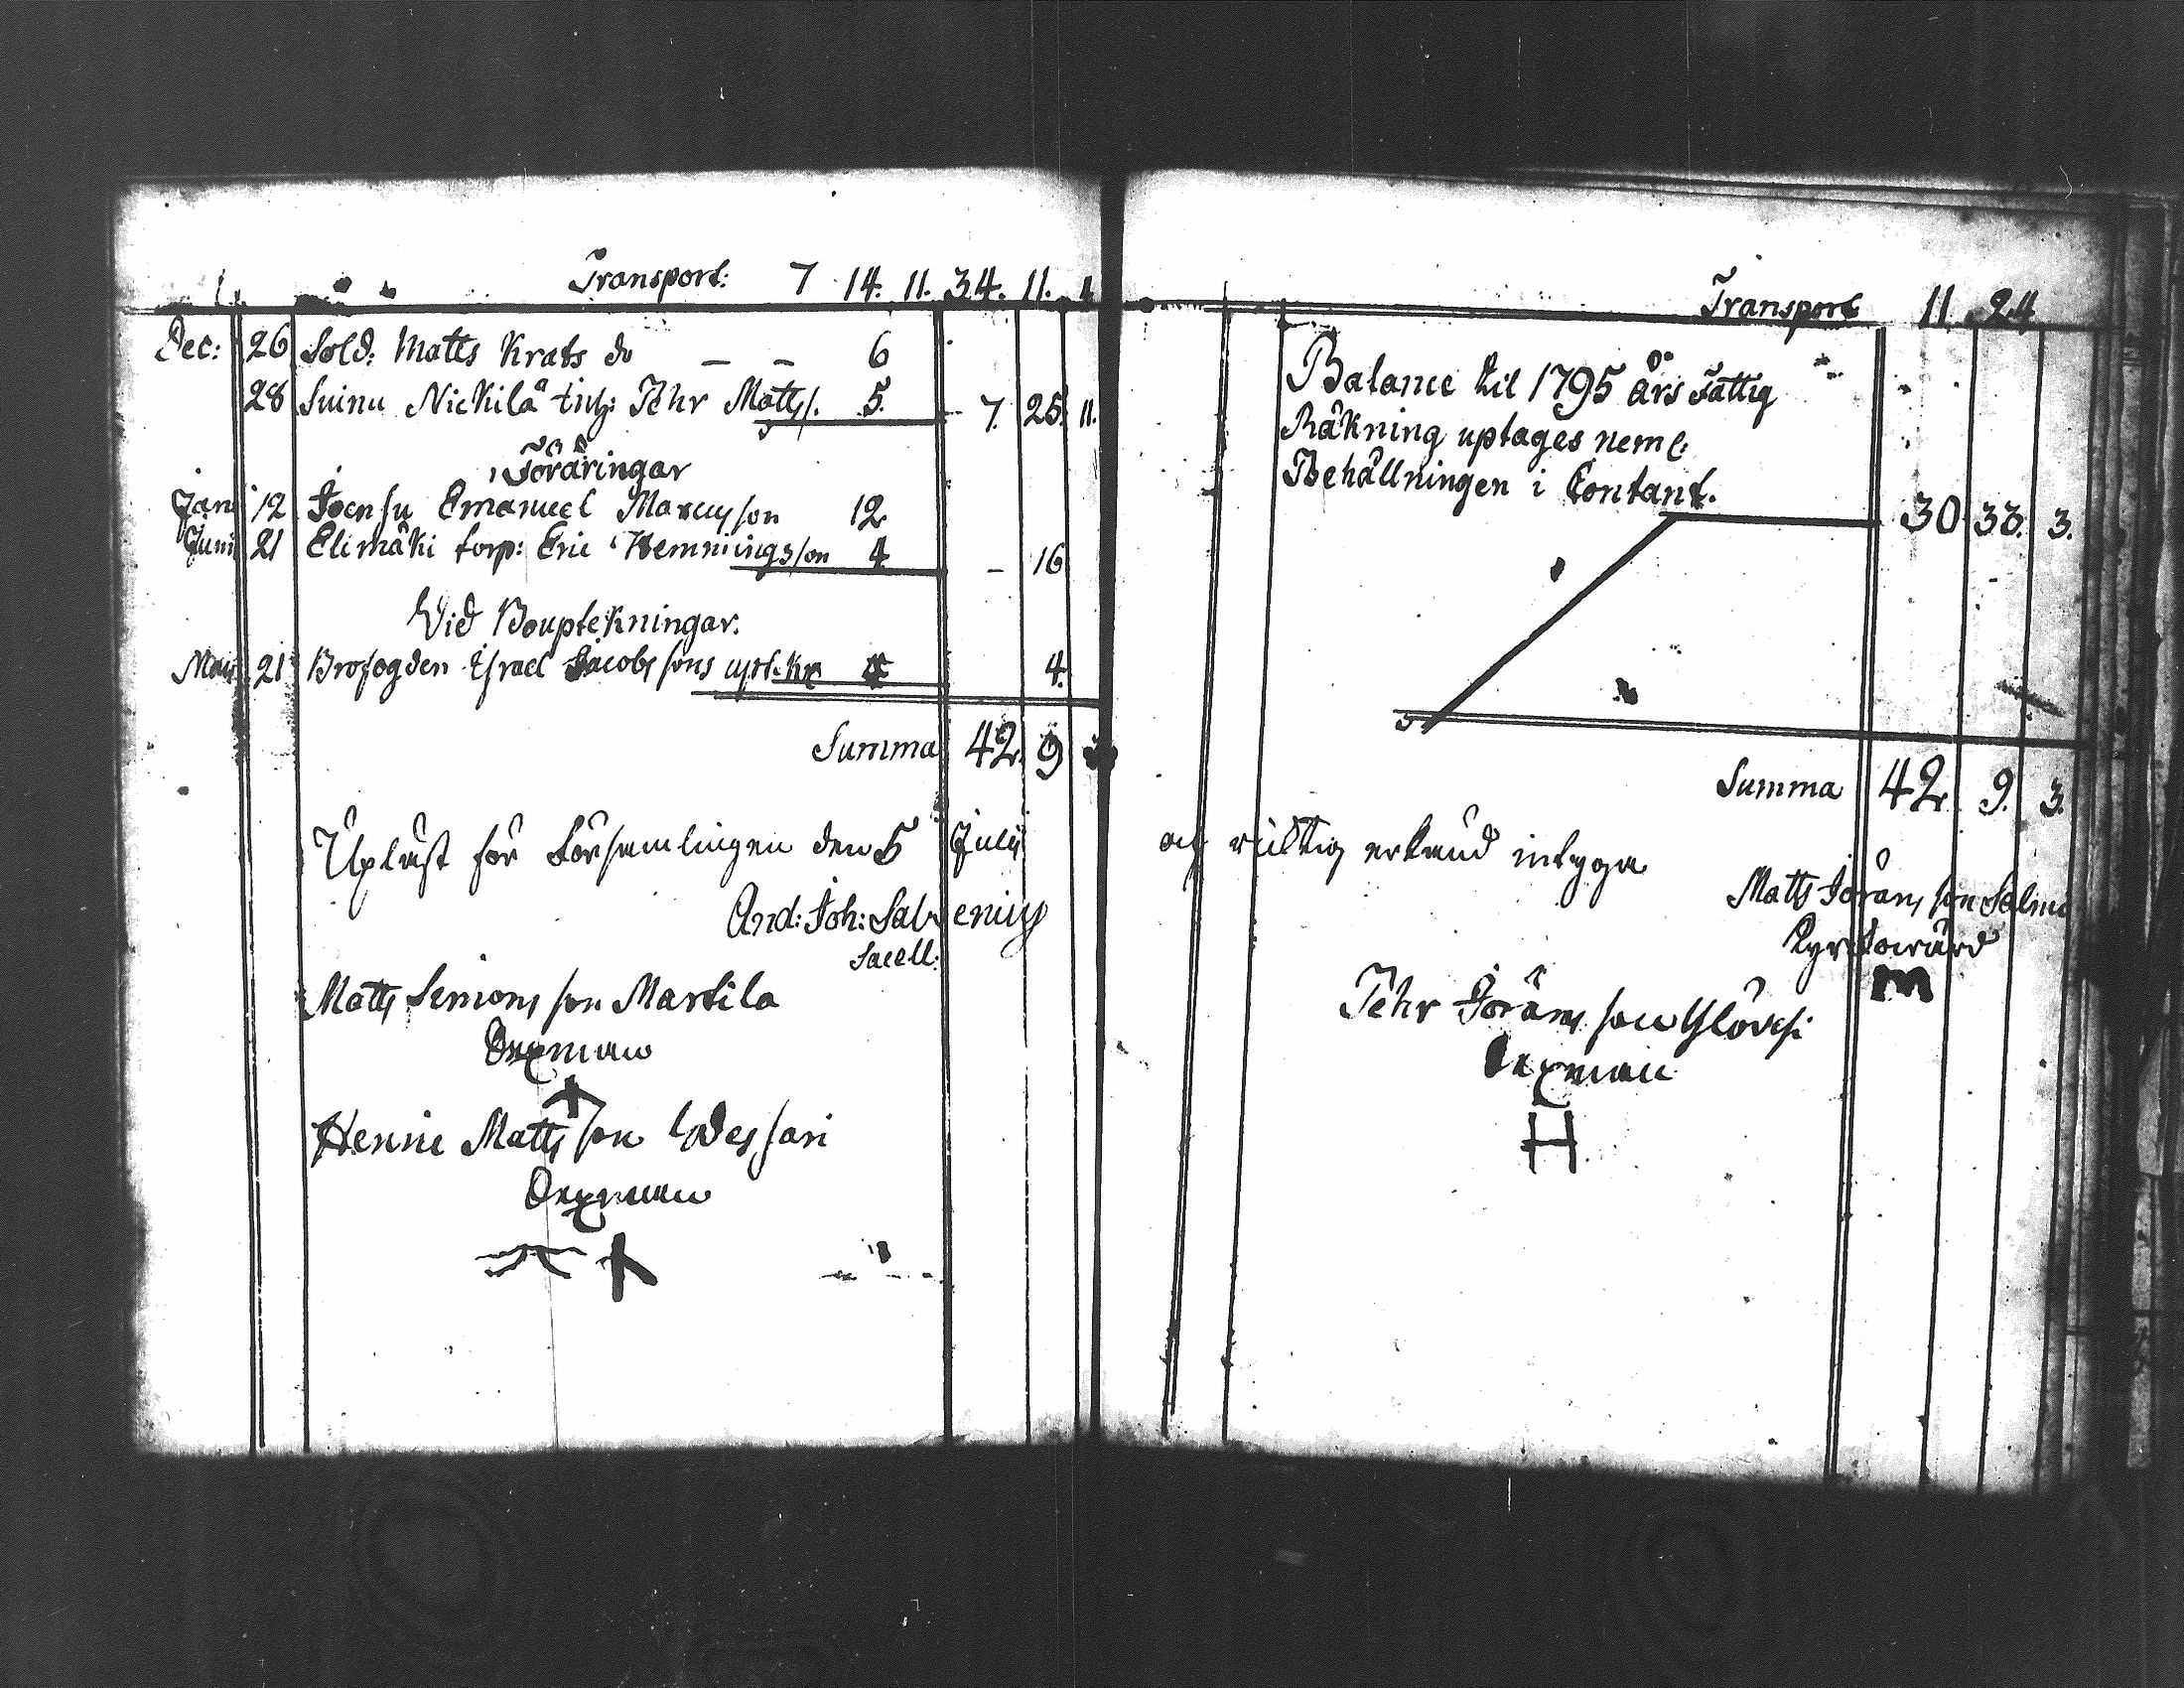 Transport: 7 14. 11. 34. 11.
Dec: 26 Sold: Matts Krats do — — 6
28 Suinu Nickilä Pehr Matts. 5. 7. 25. 11.
Föräringar
Janu 12 Joensu Emanuel Marcusson 12
Junii 21 Elimäki torp: Eric Hemmingsson 4 – 16
Vid Bouptekningar.
Maii 21 Brofogden Israel Jacobssons uptekn 4 4.
Summa 42. 9
Upläst för Församlingen den 5 Julii
And: Joh: Salvenius
Sacell:
Matts Simonsson Martila
Sexman
Henric Mattsson
Sexman
Transport 11. 24
Balance til 1795 års Fattig
Räkning uptages neml:
Behållningen i Contant. 30 33. 3.
Summa 42. 9. 3.
och richtig erkänd intyga
Matts Jöransson Salmi
Kyrkowärd
m
Pehr Jöransson Ylöusi
Sexman
H